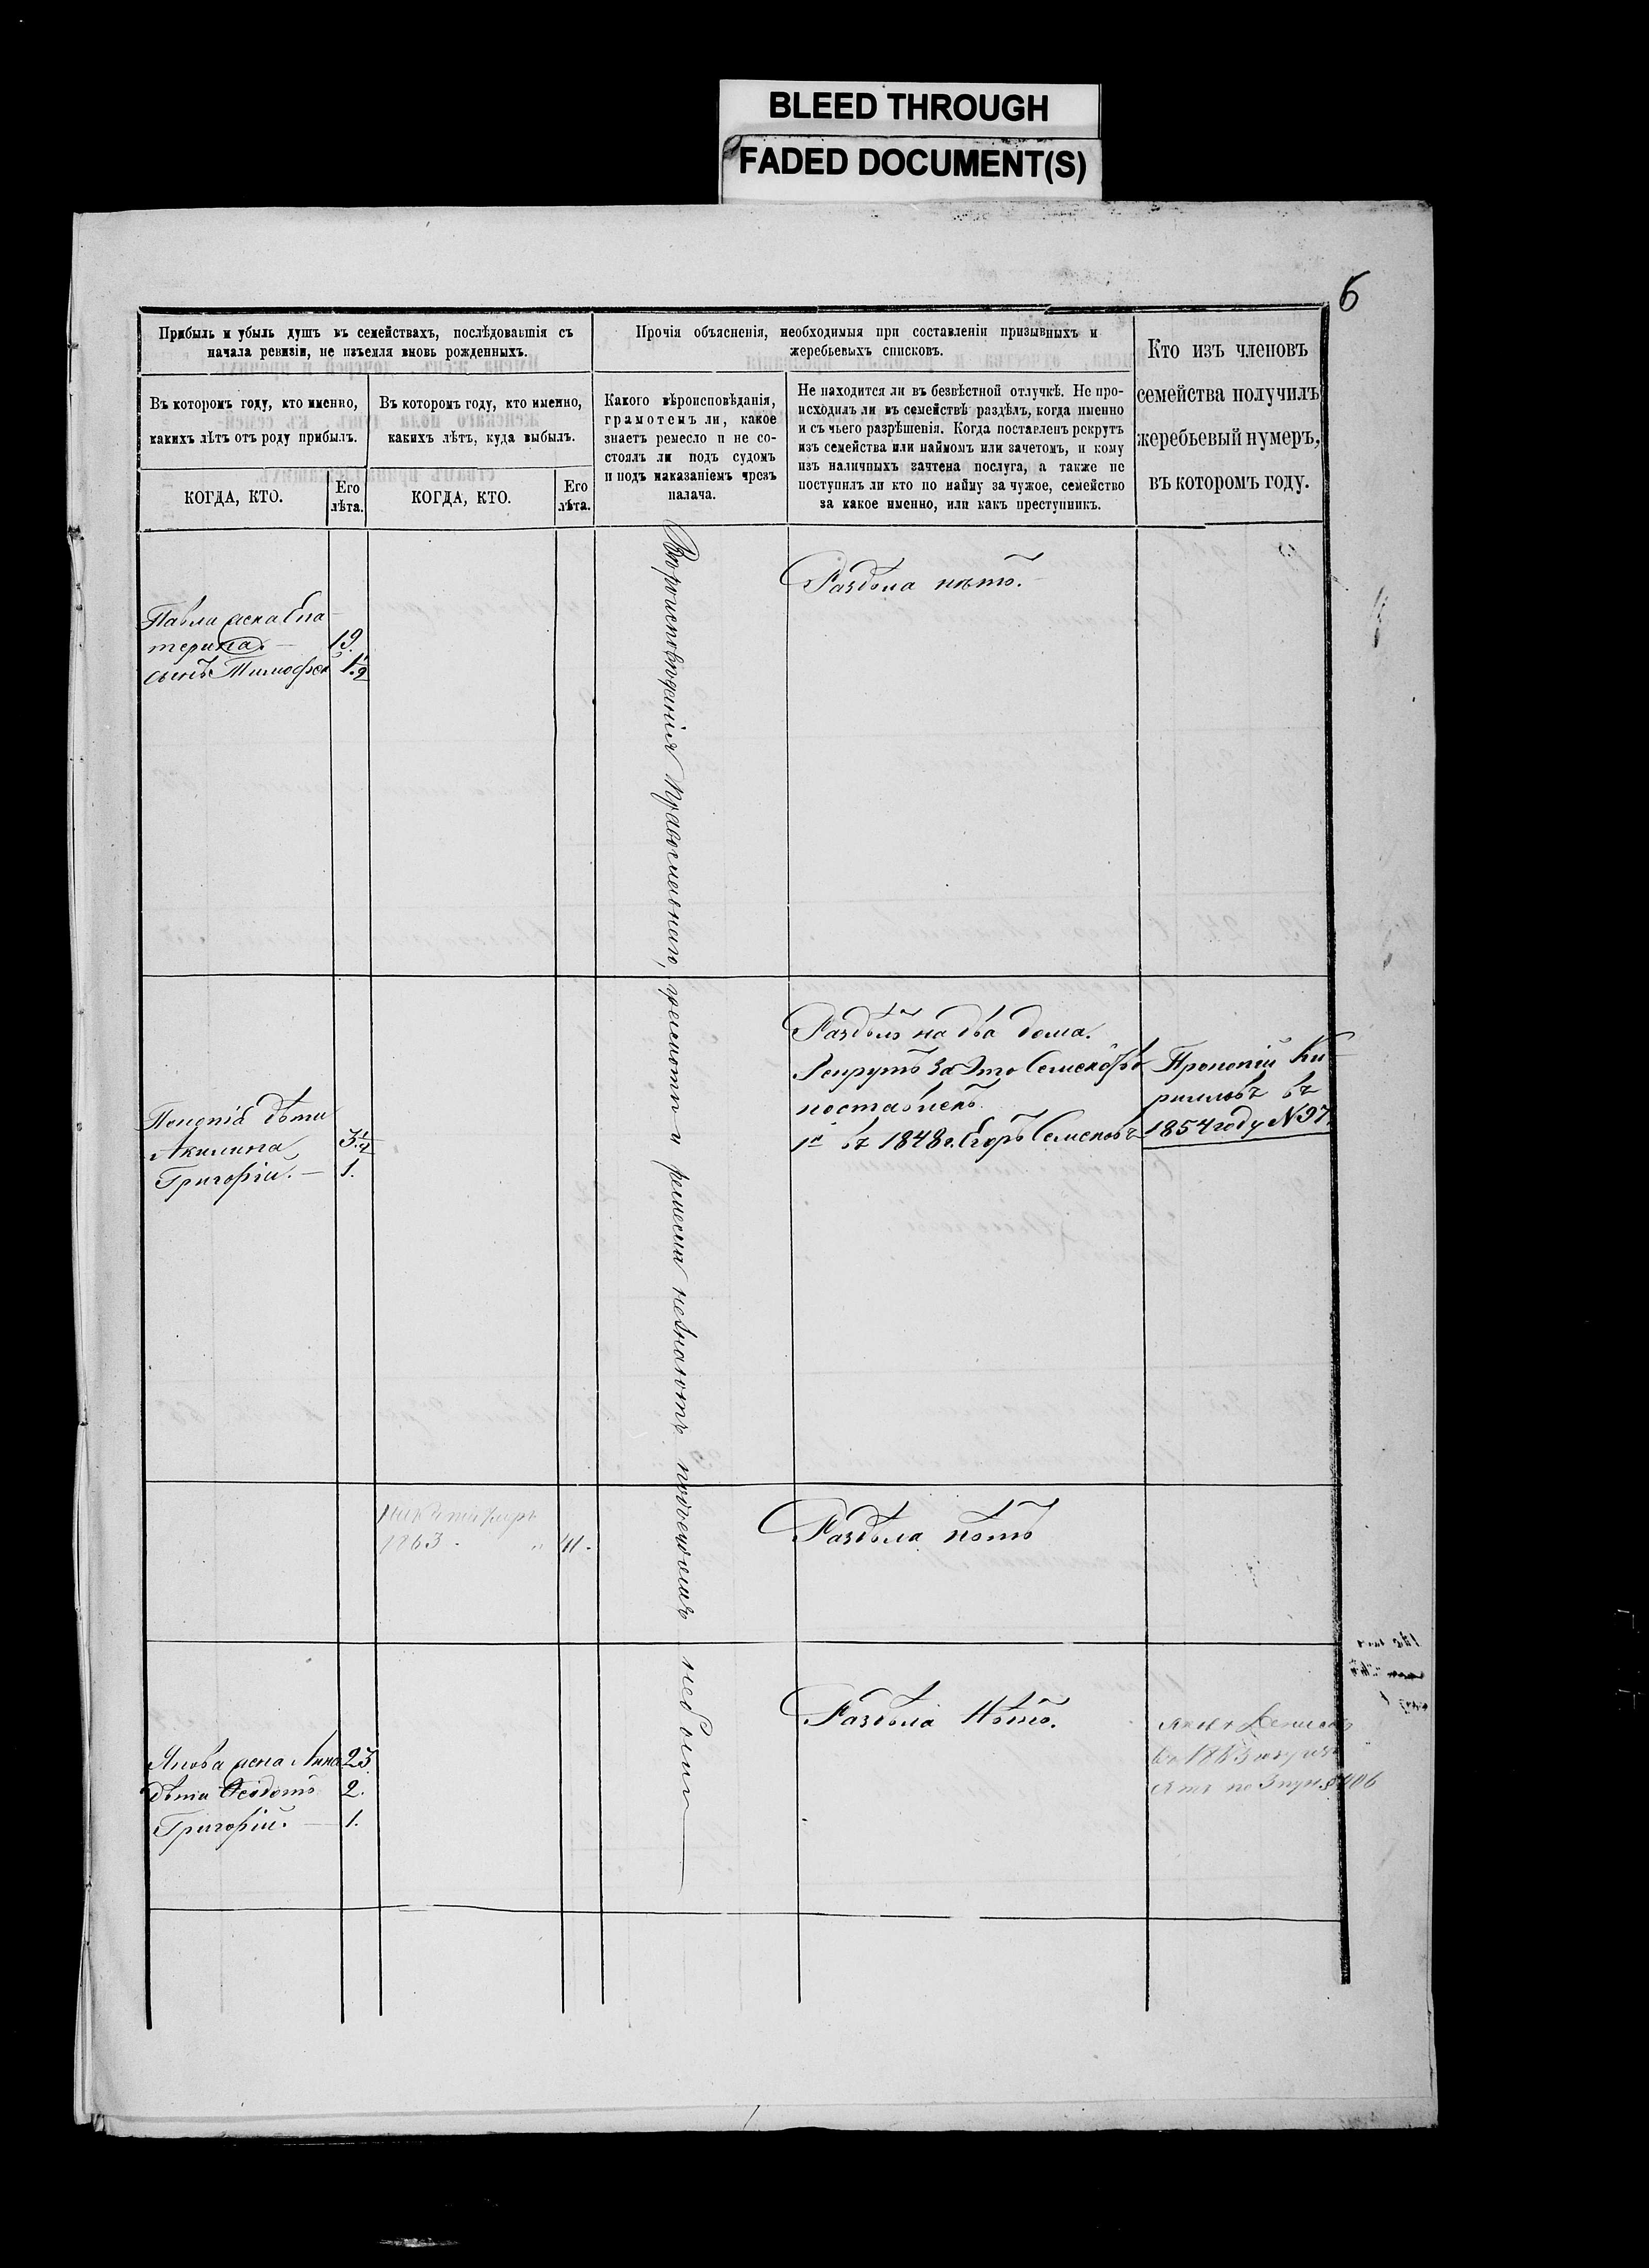 BLEED THROUGH
FADED DOCUMENT(S)
6
Прибыль и убыль душъ въ семействахъ, послѣдовавшія съ
начала ревизіи, не изъемля вновь рожденныхъ.
Въ которомъ году, кто именно,
какихъ лѣтъ отъ роду прибылъ.
КОГДА, КТО.
Его
лѣта.
Въ которомъ году, кто именно,
какихъ лѣтъ, куда выбылъ.
КОГДА, КТО.
Его
лѣта.
Прочія объясненія, необходимыя при составленіи призывныхъ и
жеребьевыхъ списковъ.
Какого вѣроисповѣданія,
грамотенъ ли, какое
знаетъ ремесло и не со-
стоялъ ли подъ судомъ
и подъ наказаніемъ чрезъ
палача.
Не находится ли въ безвѣстной отлучкѣ. Не про-
исходилъ ли въ семействѣ раздѣлъ, когда именно
и съ чьего разрѣшенія. Когда поставленъ рекрутъ
изъ семейства или наймомъ или зачетомъ, и кому
изъ наличныхъ зачтена послуга, а также не
поступилъ ли кто по найму за чужое, семейство
за какое именно, или какъ преступникъ.
Кто изъ членовъ
семейства получилъ
жеребьевый нумеръ,
въ которомъ году.
Вѣроисповѣданія Православнаго, грамоты и ремесла незнаютъ подсудомъ небыли
Павла жена Ека
терина. 19.
сынъ Тимофей 1½
Раздѣла нѣтъ.
дѣти
Акилина 3½
Григорій. 1.
Раздѣлъ на два дома.
Рекрутъ за это Семейство
поставленъ
1й въ 1848 г. Егоръ Семеновъ
Прокопій Ки
риловъ въ
1854 году N 97.
1863. 41.
Раздѣла нѣтъ
Якова жена Анна 23.
дѣти Ѳеодотъ 2.
Григорій. 1.
Раздѣла Нѣтъ.
въ 1863
по 3 пун. § 406